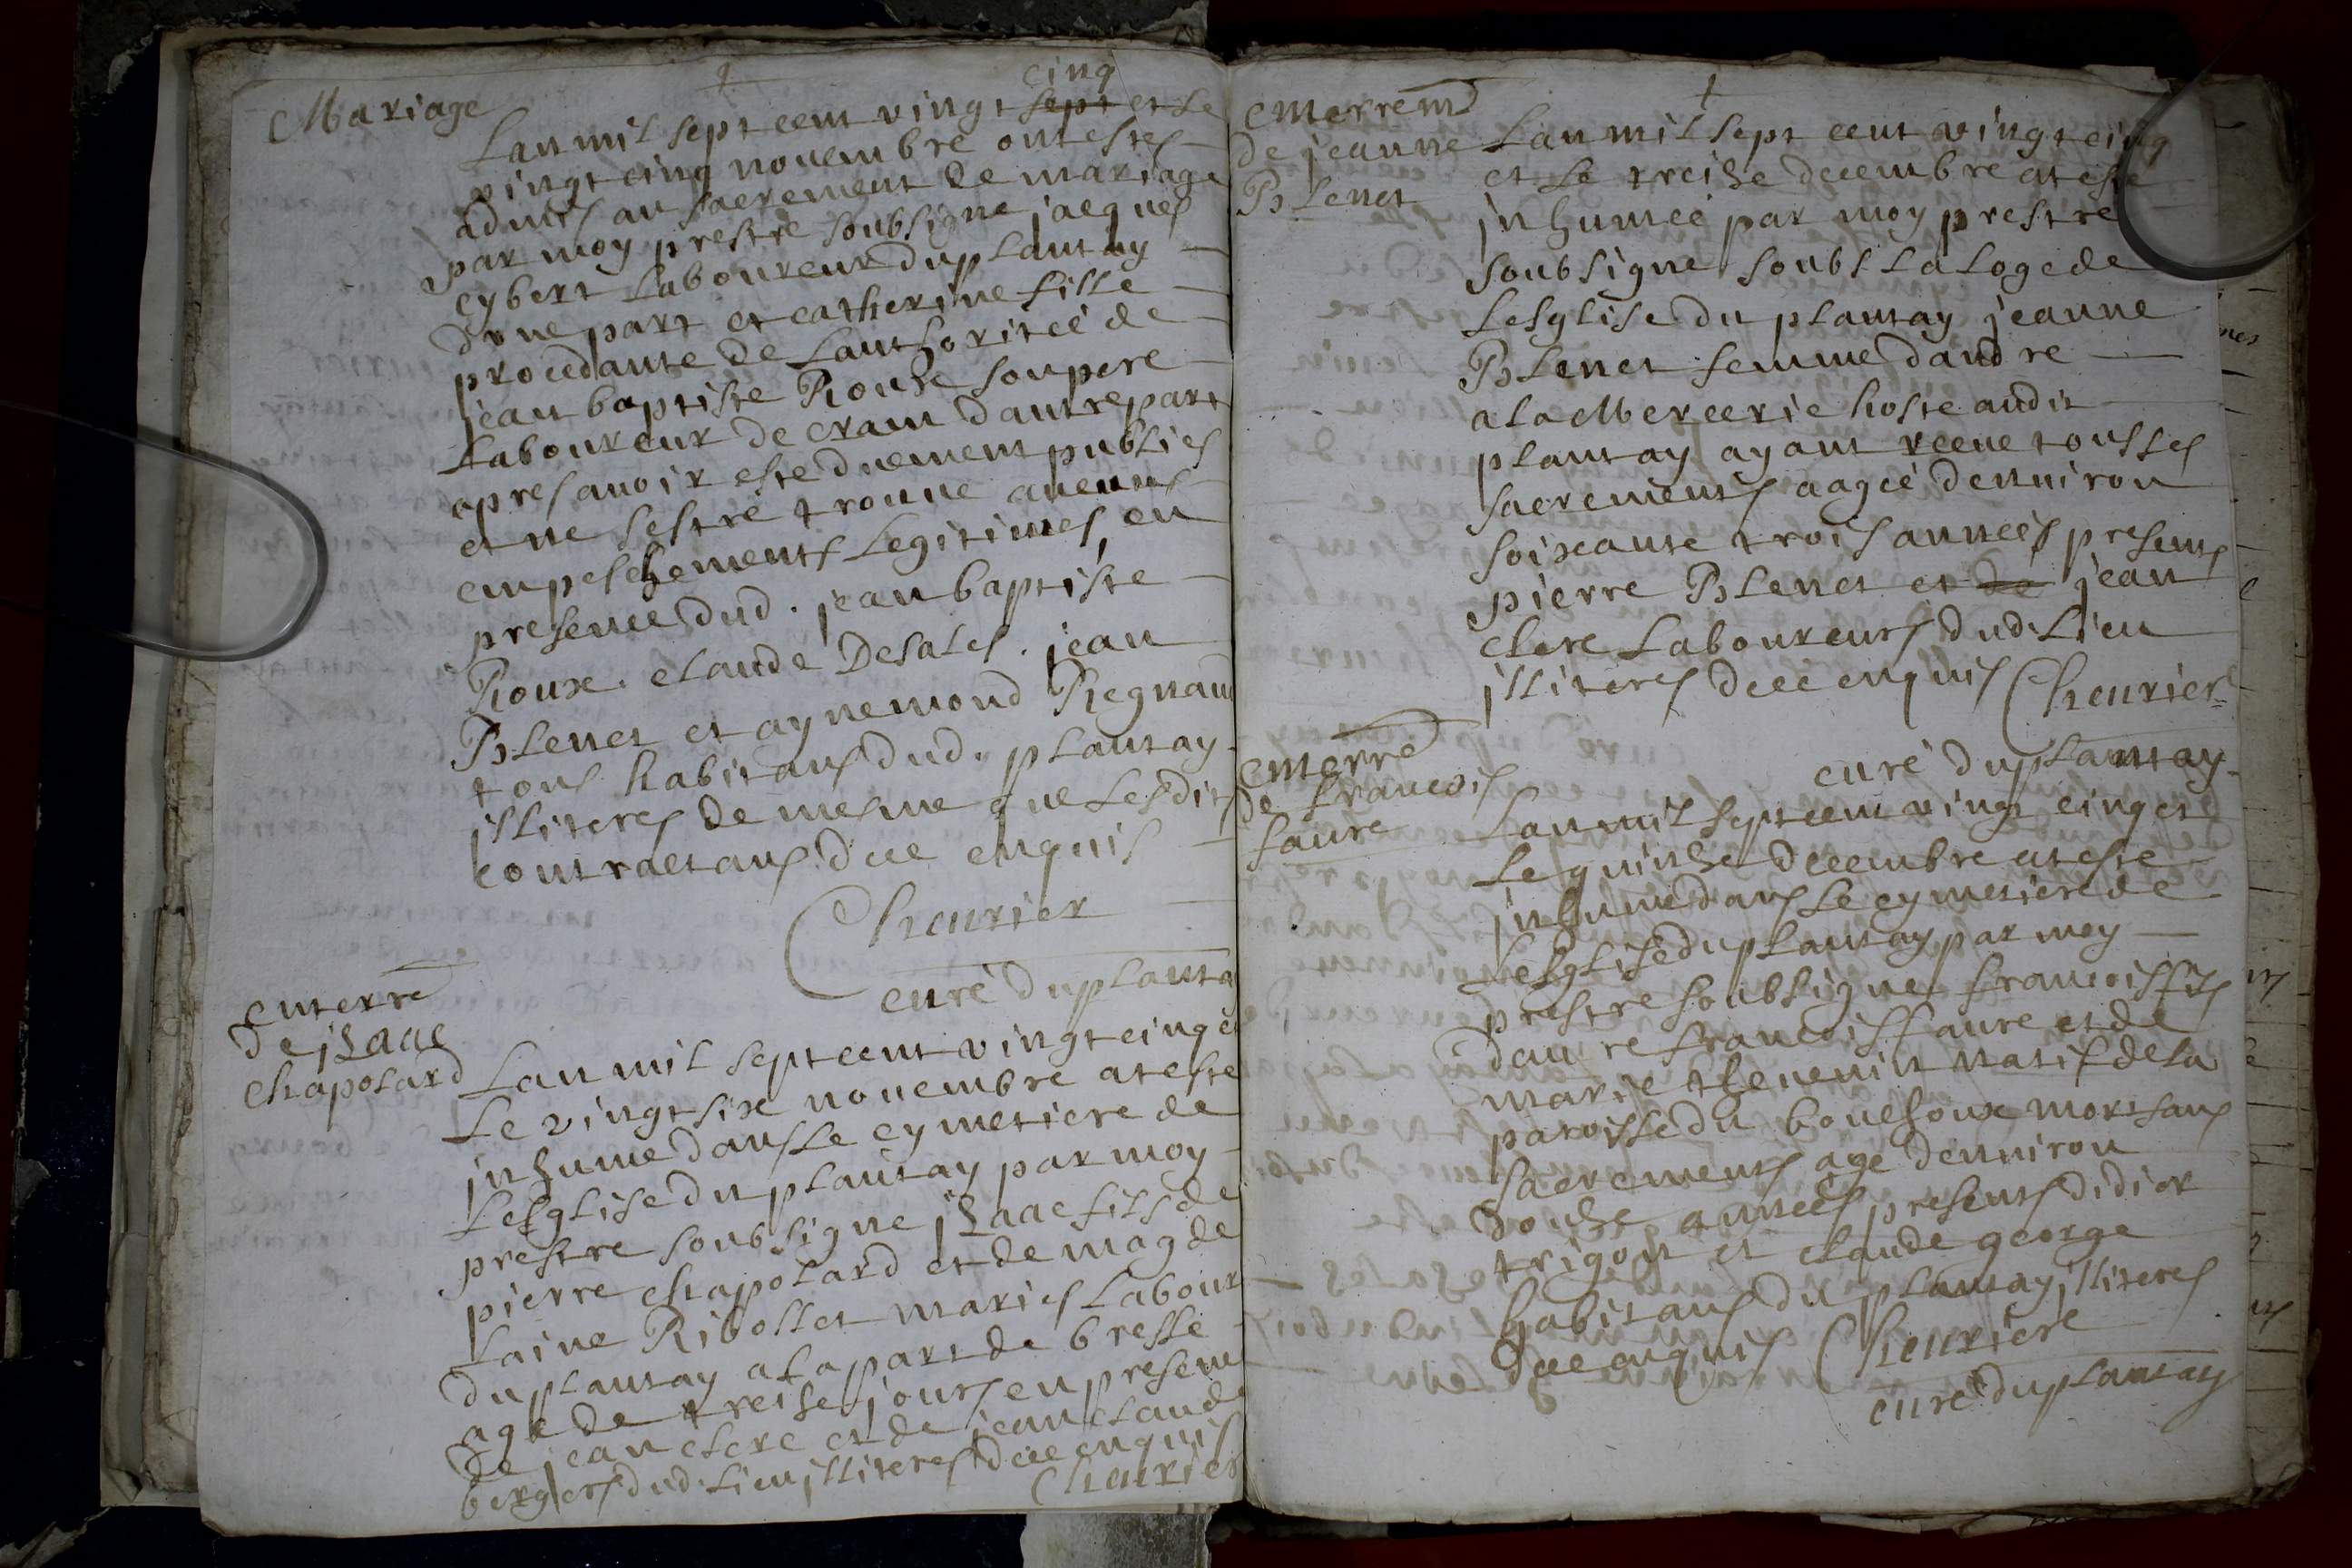 Mariage
cinq
Lan mil sept cent vingt sept et le
vingt cinq nouembre ont estes
admis au sacrement de mariage
par moy prestre soubsigne jacques
cybert laboureur du plantay
dvne part et catherine fille
procedante de lauthoritéé de
jean baptiste Rouxe son pere
laboureur de crain dautre part
apres auoir esté duement publies
et ne sestre trouue aucuns
empeschements legitimes, en
presence dud. jean baptiste
Roux. claude Desales. jean
Blenet et aynemond Regnaud
tous habitans dud. plantay
illiteres de mesme que lesdits
contractans dece enquis
Cheurier
curé du planta
enterre
de jsaac
chapolard
Lan mil sept cent vingt cinq et
le vingt sixe nouembre at este
jnhume dans le cymetiere de
lesglise du plantay par moy
prestre soubsigne jsaac fils de
pierre chapolard et de magde
laine Ribollet maries labour
du plantay a la part de bresse
age de treise jours en presence
de jean clere et de jean claude
bergiers dud. lieu illiteres dece enquis
Cheurier
enterrem
de jeanne
Blenet
Lan mil sept cent vingt cinq
et le treize decembre at este
jnhumeé par moy prestre
soubsigne soubs la loge de
lesglise du plantay jeanne
Blenet femme dandre
a la Mercerie hoste audit
plantay ayant receue tous les
sacrements aagéé denuiron
soixcante trois annéés presents
pierre Blenet et de jean
clere laboureurs dud. lieu
jlliteres decé enquis Cheurier
curé du plantay
enterré
de francois
faure
Lan mil sept cent vingt cinq et
le quinze decembre at este
jnhumé dans le cymetiere de
lesglise du plantay par moy
prestre soubsigne francois fils
dau re francois faure et de
marie theuenin natif de la
paroisse du bouchoux mort sans
sacrements age denuiron
douze annéés presents didier
trigon et claude george
habitans du plantay illiteres
dece enquis Cheuriere
curé du plantay